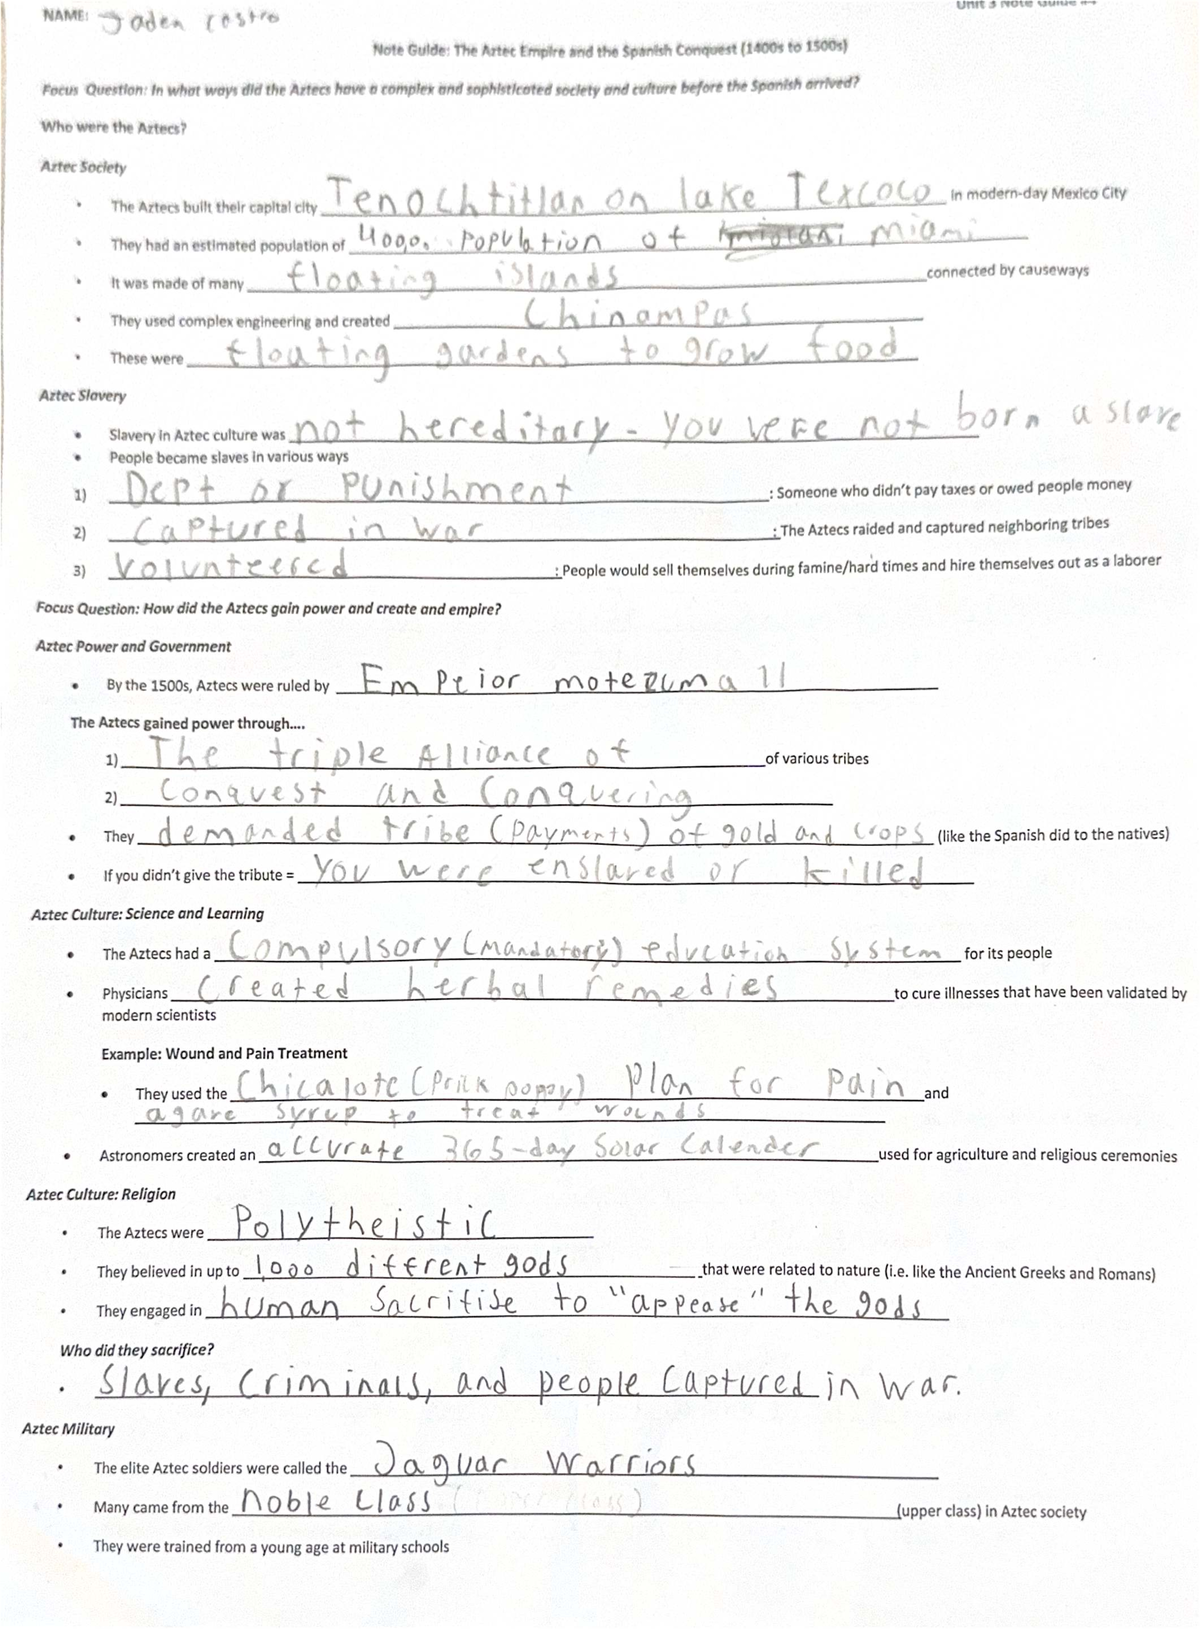 NAME: Jaden Costro
Unit 3 Note Guide
Note Guide: The Aztec Empire and the Spanish Conquest (1400s to 1500s)
Focus Question: In what ways did the Aztecs have a complex and sophisticated society and culture before the Spanish arrived?
Who were the Aztecs?
Aztec Society
• The Aztecs built their capital city Tenochtitlan on lake Texcoco in modern-day Mexico City
• They had an estimated population of population of miami
• It was made of many floating islands connected by causeways
• They used complex engineering and created Chinampas
• These were floating gardens to grow food
Aztec Slavery
• Slavery in Aztec culture was not hereditary - you were not born a slave
• People became slaves in various ways
1) Dept or Punishment : Someone who didn't pay taxes or owed people money
2) Captured in war : The Aztecs raided and captured neighboring tribes
3) Volunteered : People would sell themselves during famine/hard times and hire themselves out as a laborer
Focus Question: How did the Aztecs gain power and create and empire?
Aztec Power and Government
• By the 1500s, Aztecs were ruled by Emperior motezuma II
The Aztecs gained power through....
1) The triple Alliance of of various tribes
2) Conquest and Conquering
• They demanded tribe (payments) of gold and crops (like the Spanish did to the natives)
• If you didn't give the tribute = you were enslaved or killed
Aztec Culture: Science and Learning
• The Aztecs had a Compulsory (mandatory) education system for its people
• Physicians Created herbal remedies to cure illnesses that have been validated by
modern scientists
Example: Wound and Pain Treatment
• They used the Chicalote (Prilk poppy) Plan for Pain and
agave syrup to treat wounds
• Astronomers created an accurate 365-day Solar Calender used for agriculture and religious ceremonies
Aztec Culture: Religion
• The Aztecs were Polytheistic
• They believed in up to 1,000 diffrent gods that were related to nature (i.e. like the Ancient Greeks and Romans)
• They engaged in human Sacrifise to "appease" the gods
Who did they sacrifice?
• Slaves, Criminals, and people Captured in war.
Aztec Military
• The elite Aztec soldiers were called the Jaguar Warriors
• Many came from the noble Class (upper class) in Aztec society
• They were trained from a young age at military schools